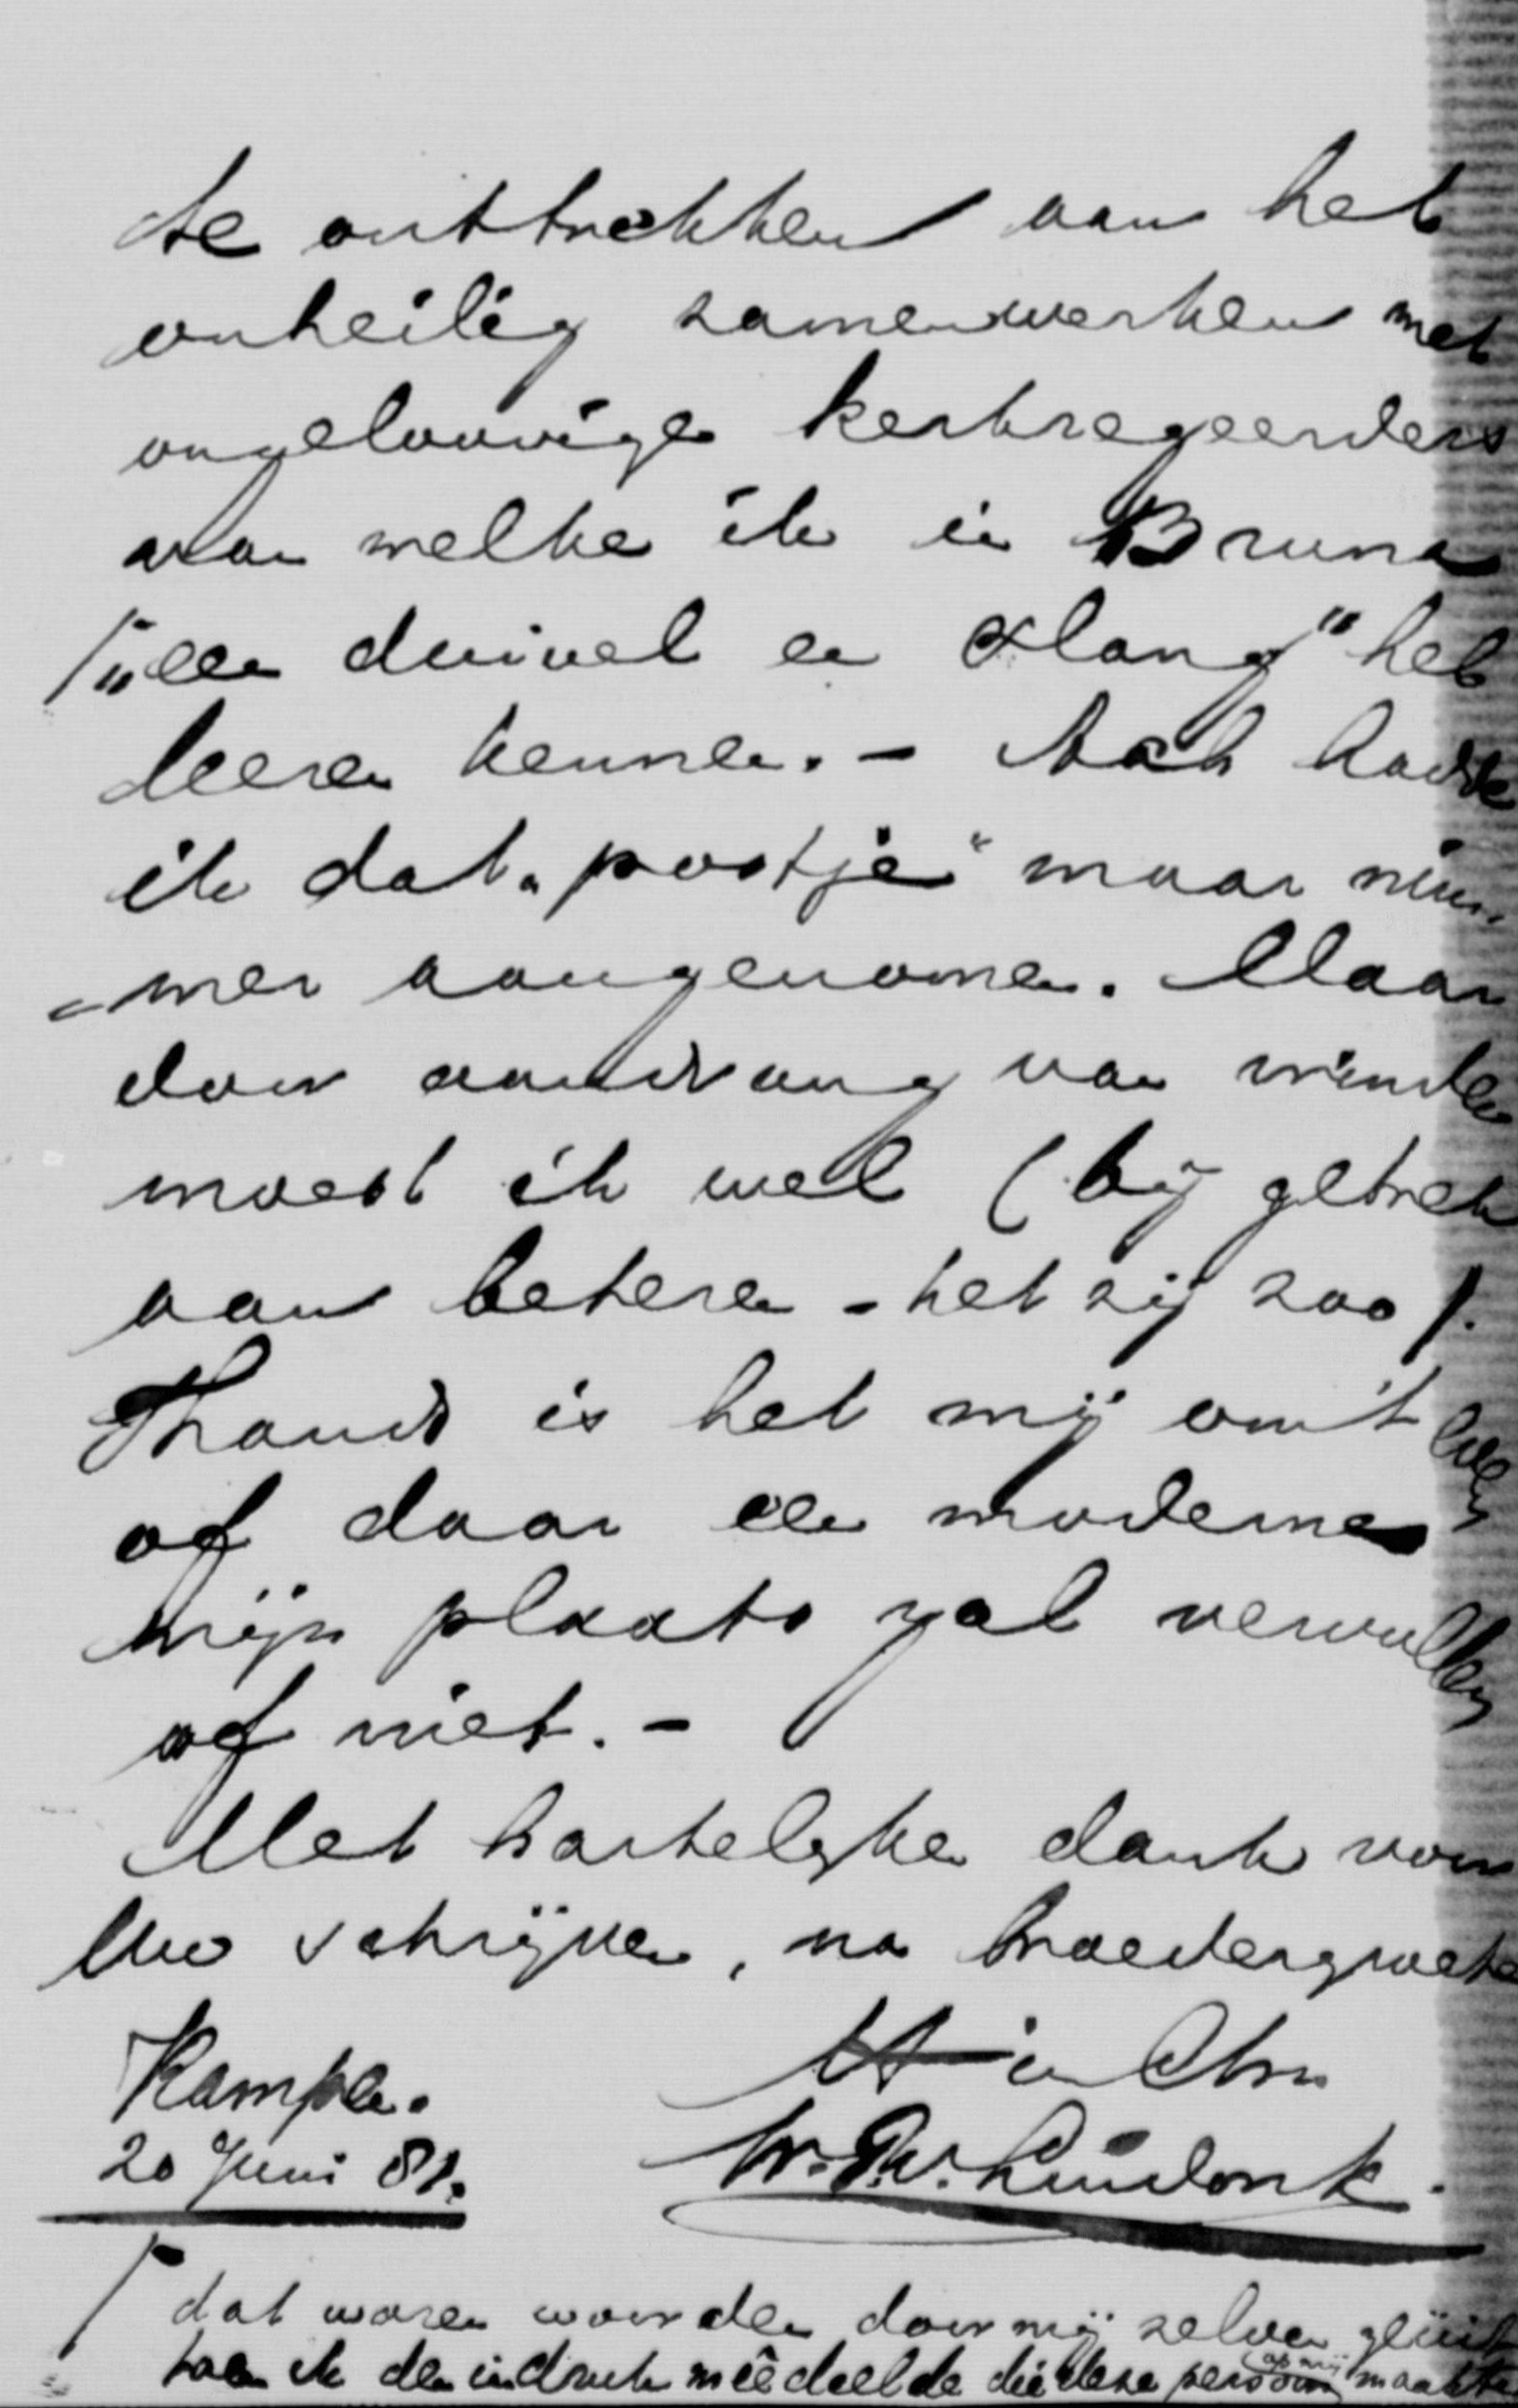 te onttrekken aan het
onheilig samenwerken met
ongeloovige kerkregeerders
van welke ik in Bruna
/ „een duivel en slang" heb
leeren kennen. - Ach hadde
ik dat „postje" maar nim-
-mer aangenomen. Maar
door aandrang van vrienden
moest ik wel (bij gebrek
aan beteren - het zij zoo).
Thans is het mij om 't even
of daar een moderne
mijn plaats zal vervullen
of niet. -
Met hartelijken dank voor
Uw schrijven, na broedergroete
in Chr.
Kampen.
20 Juni 81.
/ dat waren woorden door mij zelven geüit
toen ik den indruk meêdeelde die deze persoon op mij maakte